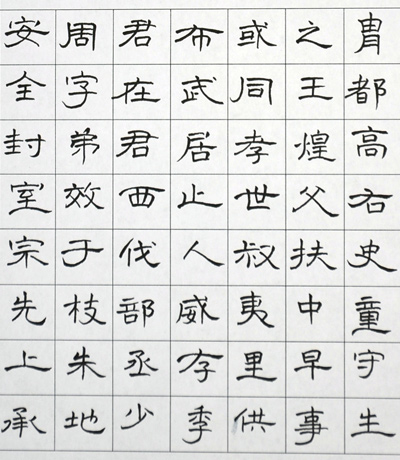 安周君布或之胄
全字在武同王都
封弟君居孝煌高
室效西止世父右
宗于伐人叔扶史
先枝部威夷中童
上朱丞存里早守
承地少季供事生